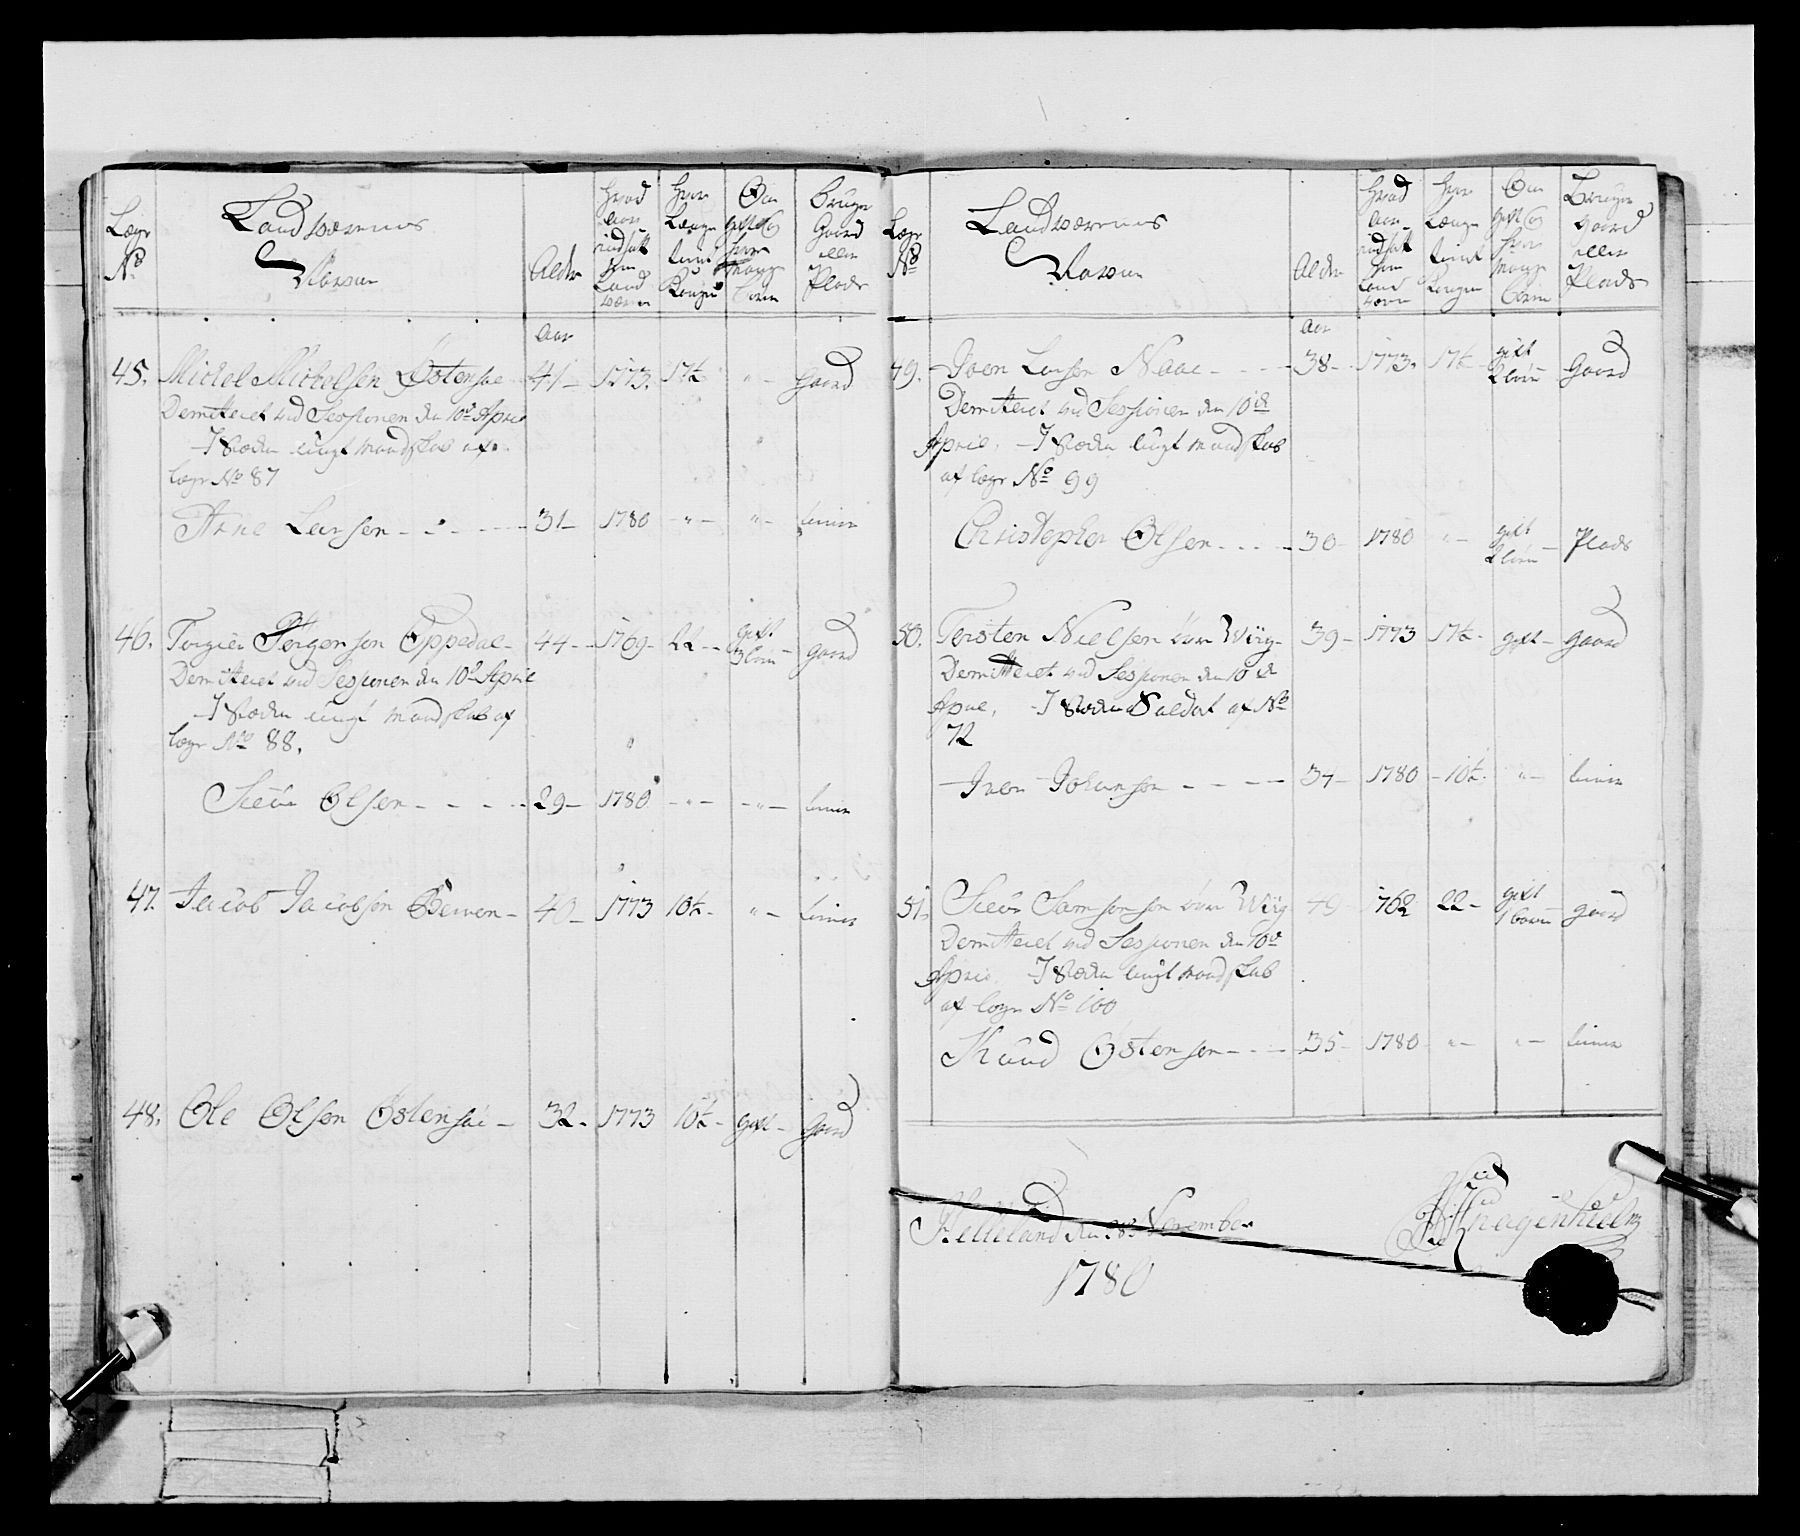 Lægs
No
Landværnens
Navne
Alder
Hvad
Aar
indsatt
som
Land
værn
Hvor
Længe
tient
Kongen
Om
gift Og
hvor
mange
børn
Bruger
Gaard
eller
Plads
Aar
45. Mickel Mickelsen Østensøe 41 – 1773. 17½ " – Gaard
Demitteret ved Sessionen den 10de April
I Stæden ungt Mandskab af
lægs No 87
Arne Larsen – – – – 31 – 1780 – " – " –
46. Torgier Torgersen Oppedal – 44 – 1769 – 22 – gift 3 børn – gaard
Demitteret ved Sessionen den 10de April
I Stæden ungt Mandskab af
lægs No 88.
Siur Olsen – – – – 29 – 1780 – " – – " –
47. Jacob Jacobsen – 40 – 1773 10½ – " –
48. Ole Olsen Østensøe – 32 – 1773 10½ – gift – Gaard
Lægs
No
Landværnens
Navne
Alder
Hvad
Aar
indsatt
som
Land
værn
Hvor
Længe
tient
Kongen
Om
gift Og
hvor
mange
børn
Bruger
gaard
eller
Plads
Aar
49. Iver Larsen Naae – – – – 38 – 1773. 17½ – gift 2 børn Gaard
Demitteret ved Sessionen den 10de
April, I Stæden ungt Mandskab
af lægs No 99
Christopher Olsen – – – – 30 – 1780 " – gift 2 børn – Plads
50. Torsten Nielsen øvre Wiig – 39 – 1773 17½ – gift – gaard
Demitteret ved Sessionen den 10de
April, I Stæden Soldat af No
72
Iver Johansen – – – – 34 – 1780 – 10½ – " –
51. Siur Samsonsen øvre Wiig 49 1762 22 – gift 1 barn gaard
Demitteret ved Sessionen den 10de
April, I Stæden ungt Mandskab
af lægs No 100
Knud Østensen – – – 35 – 1780 " – " –
Helleland den 28 November
1780